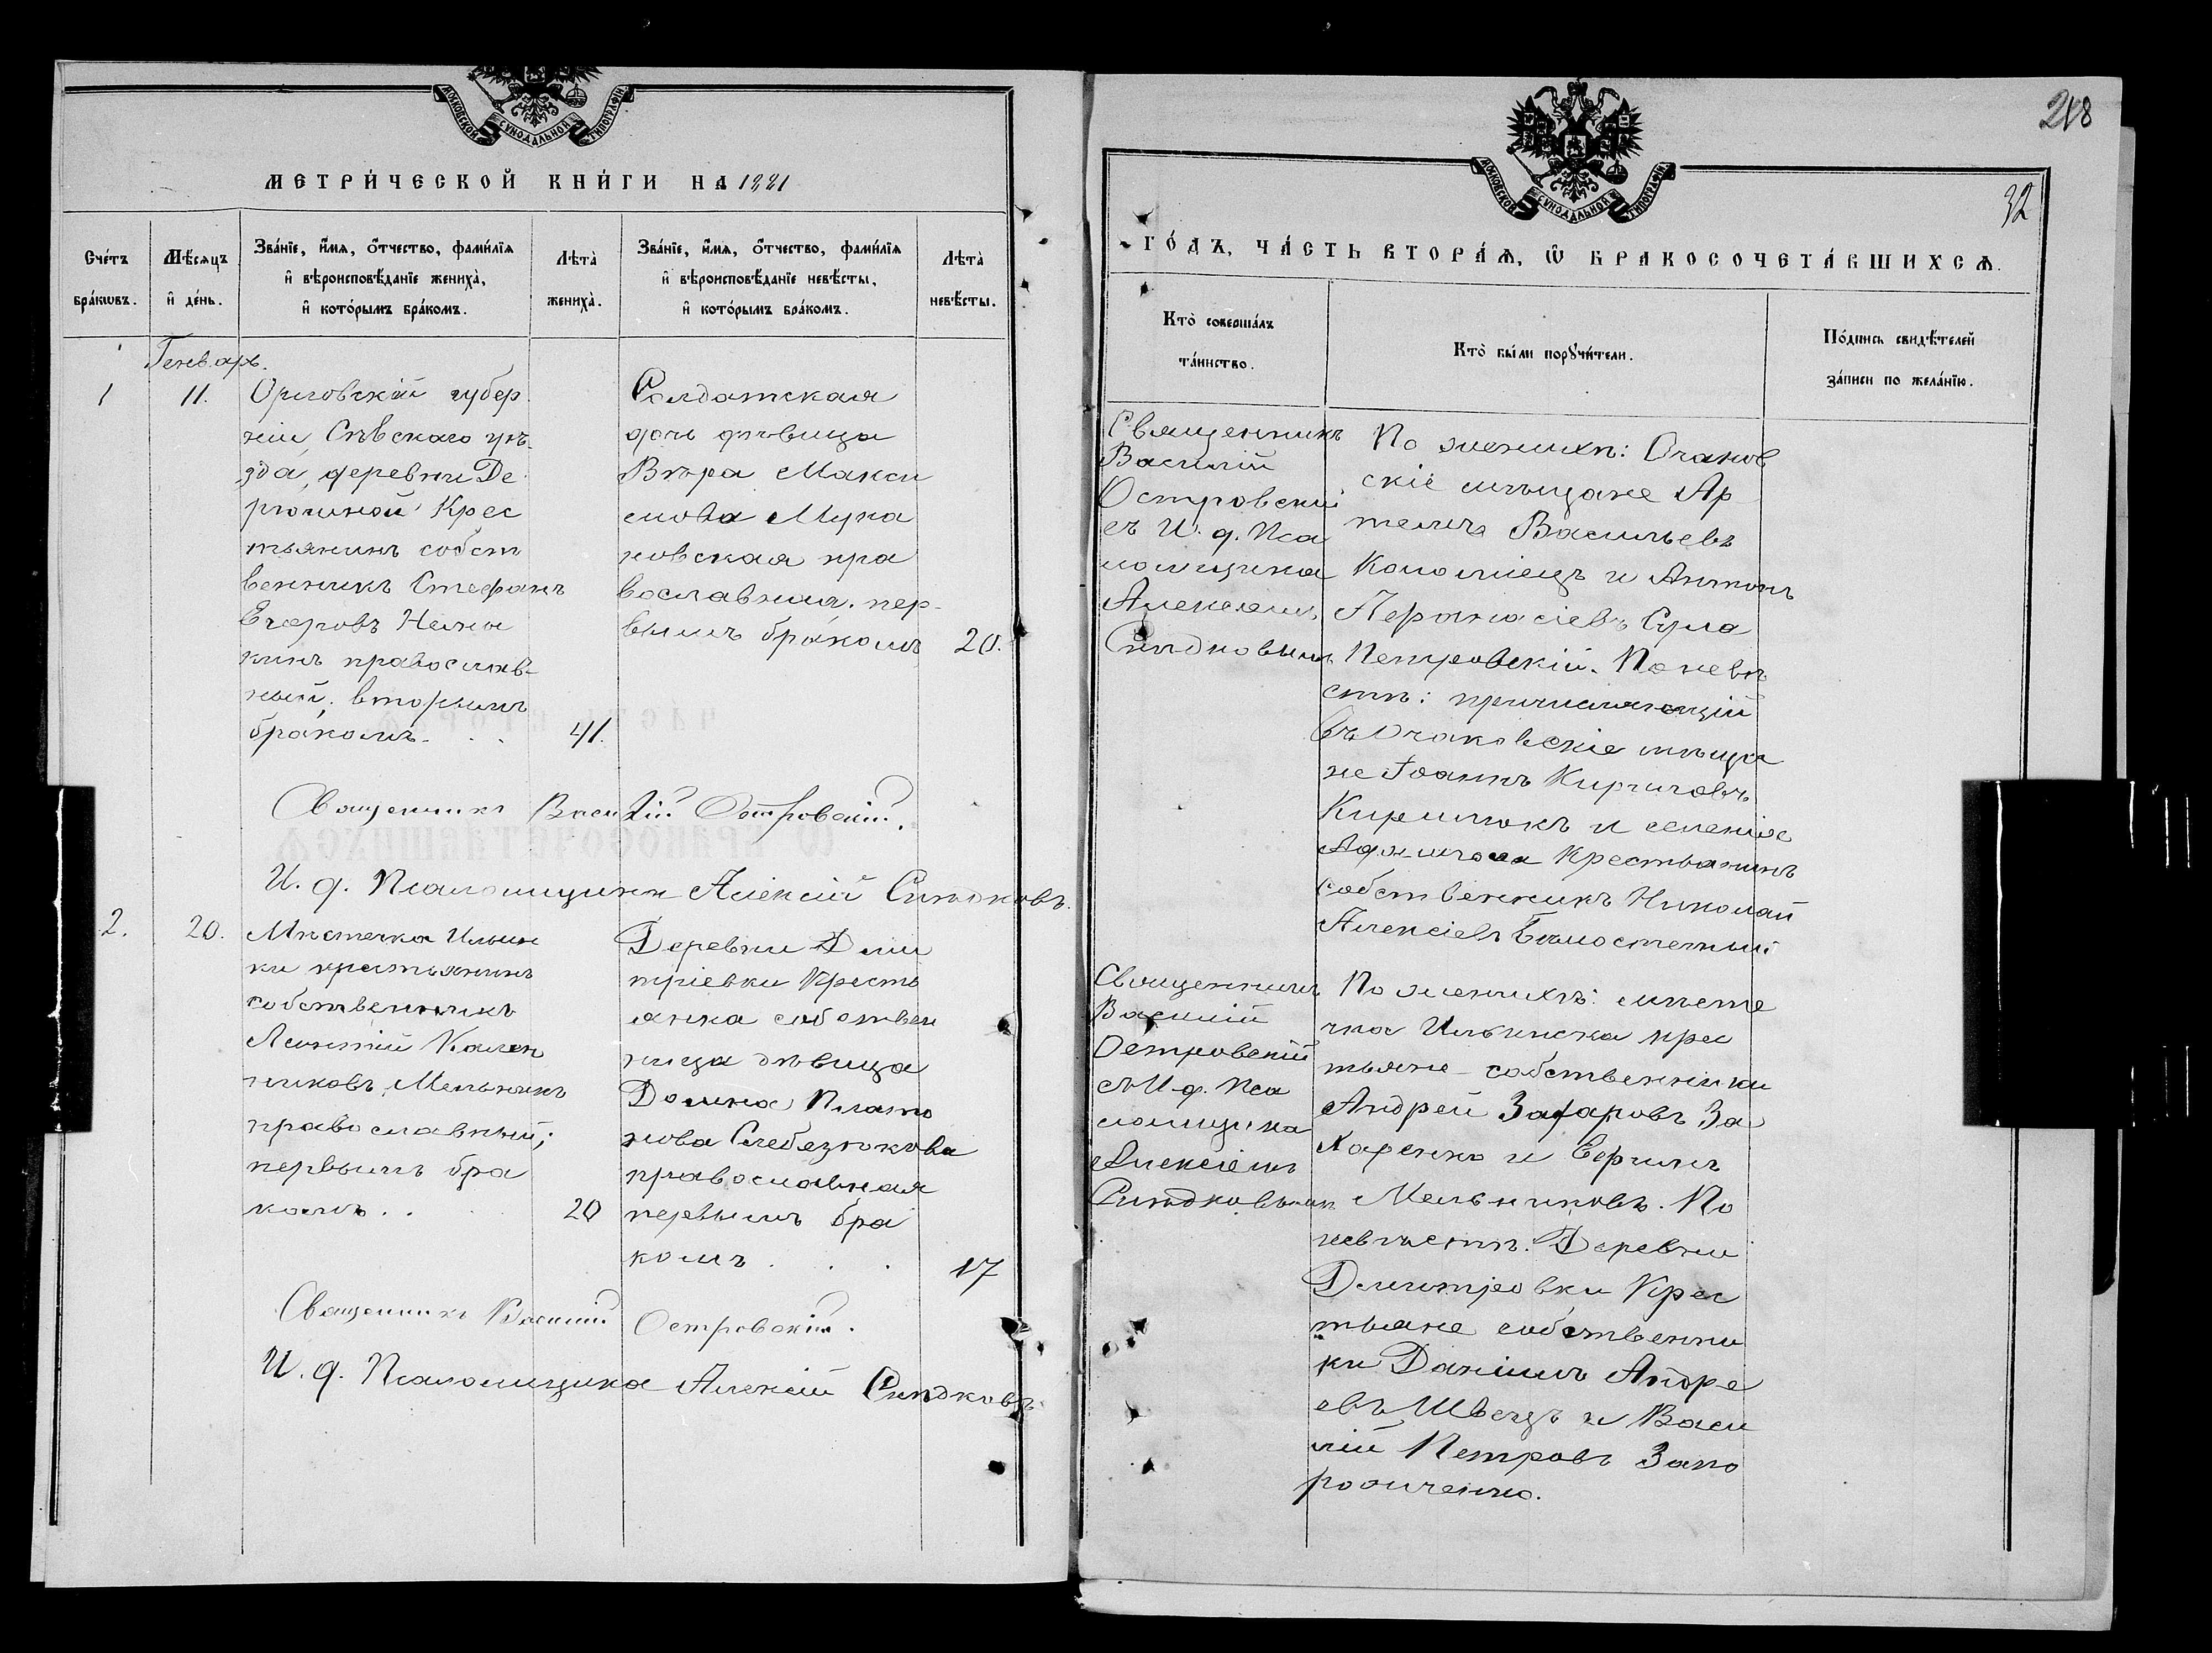 МОСКОВСКОЙ СѴНОДАЛЬНОЙ ТИПОГРАФІИ
МЕТРИ́ЧЕСКОЙ КНИ́ГИ НА 1881
Сче́тъ бра́кѡвъ.
Мѣ́сѧцъ и҆ де́нь.
Зва́нїе, и҆́мѧ, ѻ҆́тчество, фами́лїѧ
и҆ вѣроисповѣ́данїе жениха̀,
и҆ кото́рымъ бра́комъ.
Лѣта̀ жениха̀.
Зва́нїе, и҆́мѧ, ѻ҆́тчество, фами́лїѧ
и҆ вѣроисповѣ́данїе невѣ́сты,
и҆ кото́рымъ бра́комъ.
Лѣта̀ невѣ́сты.
Генварь.
1
11.
Орловскій губер
ніи, Сѣвскаго уѣ-
зда, деревни Де
рюгиной Крес
тьянинъ собст
венникъ Стефанъ
Егоровъ
кинъ православ-
ный, вторымъ
бракомъ. . .
41.
Солдатская
дочь дѣвица
Вѣра Макси
мова Мука
новская пра
вославная. пер-
вымъ бракомъ
20.
Священникъ Василій Островскій.
И. д. Псаломщика Алексій Синдковъ.
2.
20.
Мѣстечка Ильин
ки крестьянинъ
собственникъ
Леонтій Калин
никовъ Мельникъ
православный;
первымъ бра
комъ. .
20
Деревни Дми
тріевки Кресть
янка собствен
ница дѣвица
Домна Плато
нова Слебезюкова
православная
первымъ бра
комъ . . .
17
Священникъ Василій Островскій.
И. д. Псаломщика Алексій Синдковъ
218
МОСКОВСКОЙ СѴНОДАЛЬНОЙ ТИПОГРАФІИ
32
ГО́ДЪ, ЧА́СТЬ ВТОРА́Ѧ, Ѽ БРАКОСОЧЕТА́ВШИХСѦ.
Кто̀ соверша́лъ
та́инство.
Кто̀ бы́ли порꙋчи́тели.
По́дпись свидѣ́телей
за́писи по жела́нїю.
Священникъ
Василій
Островскій
съ И. д. Пса
ломщика
Алексѣемъ
Синдковымъ
По женихѣ: Очаков
скіе мѣщане Ар
темъ Васильевъ
Коломіецъ и Антонъ
Сума
Петровскій. По невѣ
стѣ: причисляющій
въ Очаковскіе мѣща
не Іоаннъ Кириловъ
Кирилюкъ и селенія
Аджигола Крестьянинъ
собственникъ Николай
Алексіевъ
Священникъ
Василій
Островскій
съ И. д. Пса
ломщика
Алексіемъ
Синдковымъ
По женихѣ: мѣсте
чка Ильинска крес
тьяне - собственники
Андрей Захаровъ За
харенко и Ефимъ
Мельниковъ. По
невѣстѣ: Деревни
Дмитріовки Крес
тьяне собственни
ки Даніилъ Андре
евъ Швецъ и Васи
лій Петровъ Запо
рожченко.